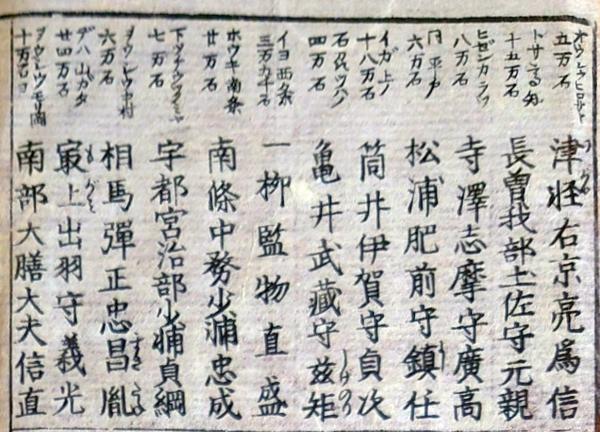 オウシウヒロサキ
五万石
津軽右京亮爲信
トサ高知
十五万石
長曽我部土佐守元親
ヒゼンカラツ
八万石
寺澤志摩守廣高
同平戸
六万石
松浦肥前守鎮任
イガ上ノ
十八万石
筒井伊賀守貞次
石見ツハノ
四万石
亀井武藏守茲矩
イヨ西条
一柳監物直盛
ホウキ南条
廿万石
南條中務少輔忠成
下ツケウツノミヤ
七万石
宇都宮治部少輔貞綱
ヲウシウ中村
六万石
相馬彈正忠昌胤
デハ山ガタ
廿四万石
最上出羽守義光
ヲウシウモリ岡
十万石
南部大膳大夫信直